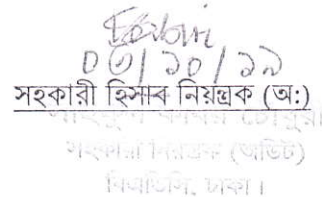 ০৩/১০/১৯
সহকারী হিসাব নিয়ন্ত্রক (অ:)
সহকারী নিয়ন্ত্রক (অডিট)
বিএডিসি, ঢাকা।